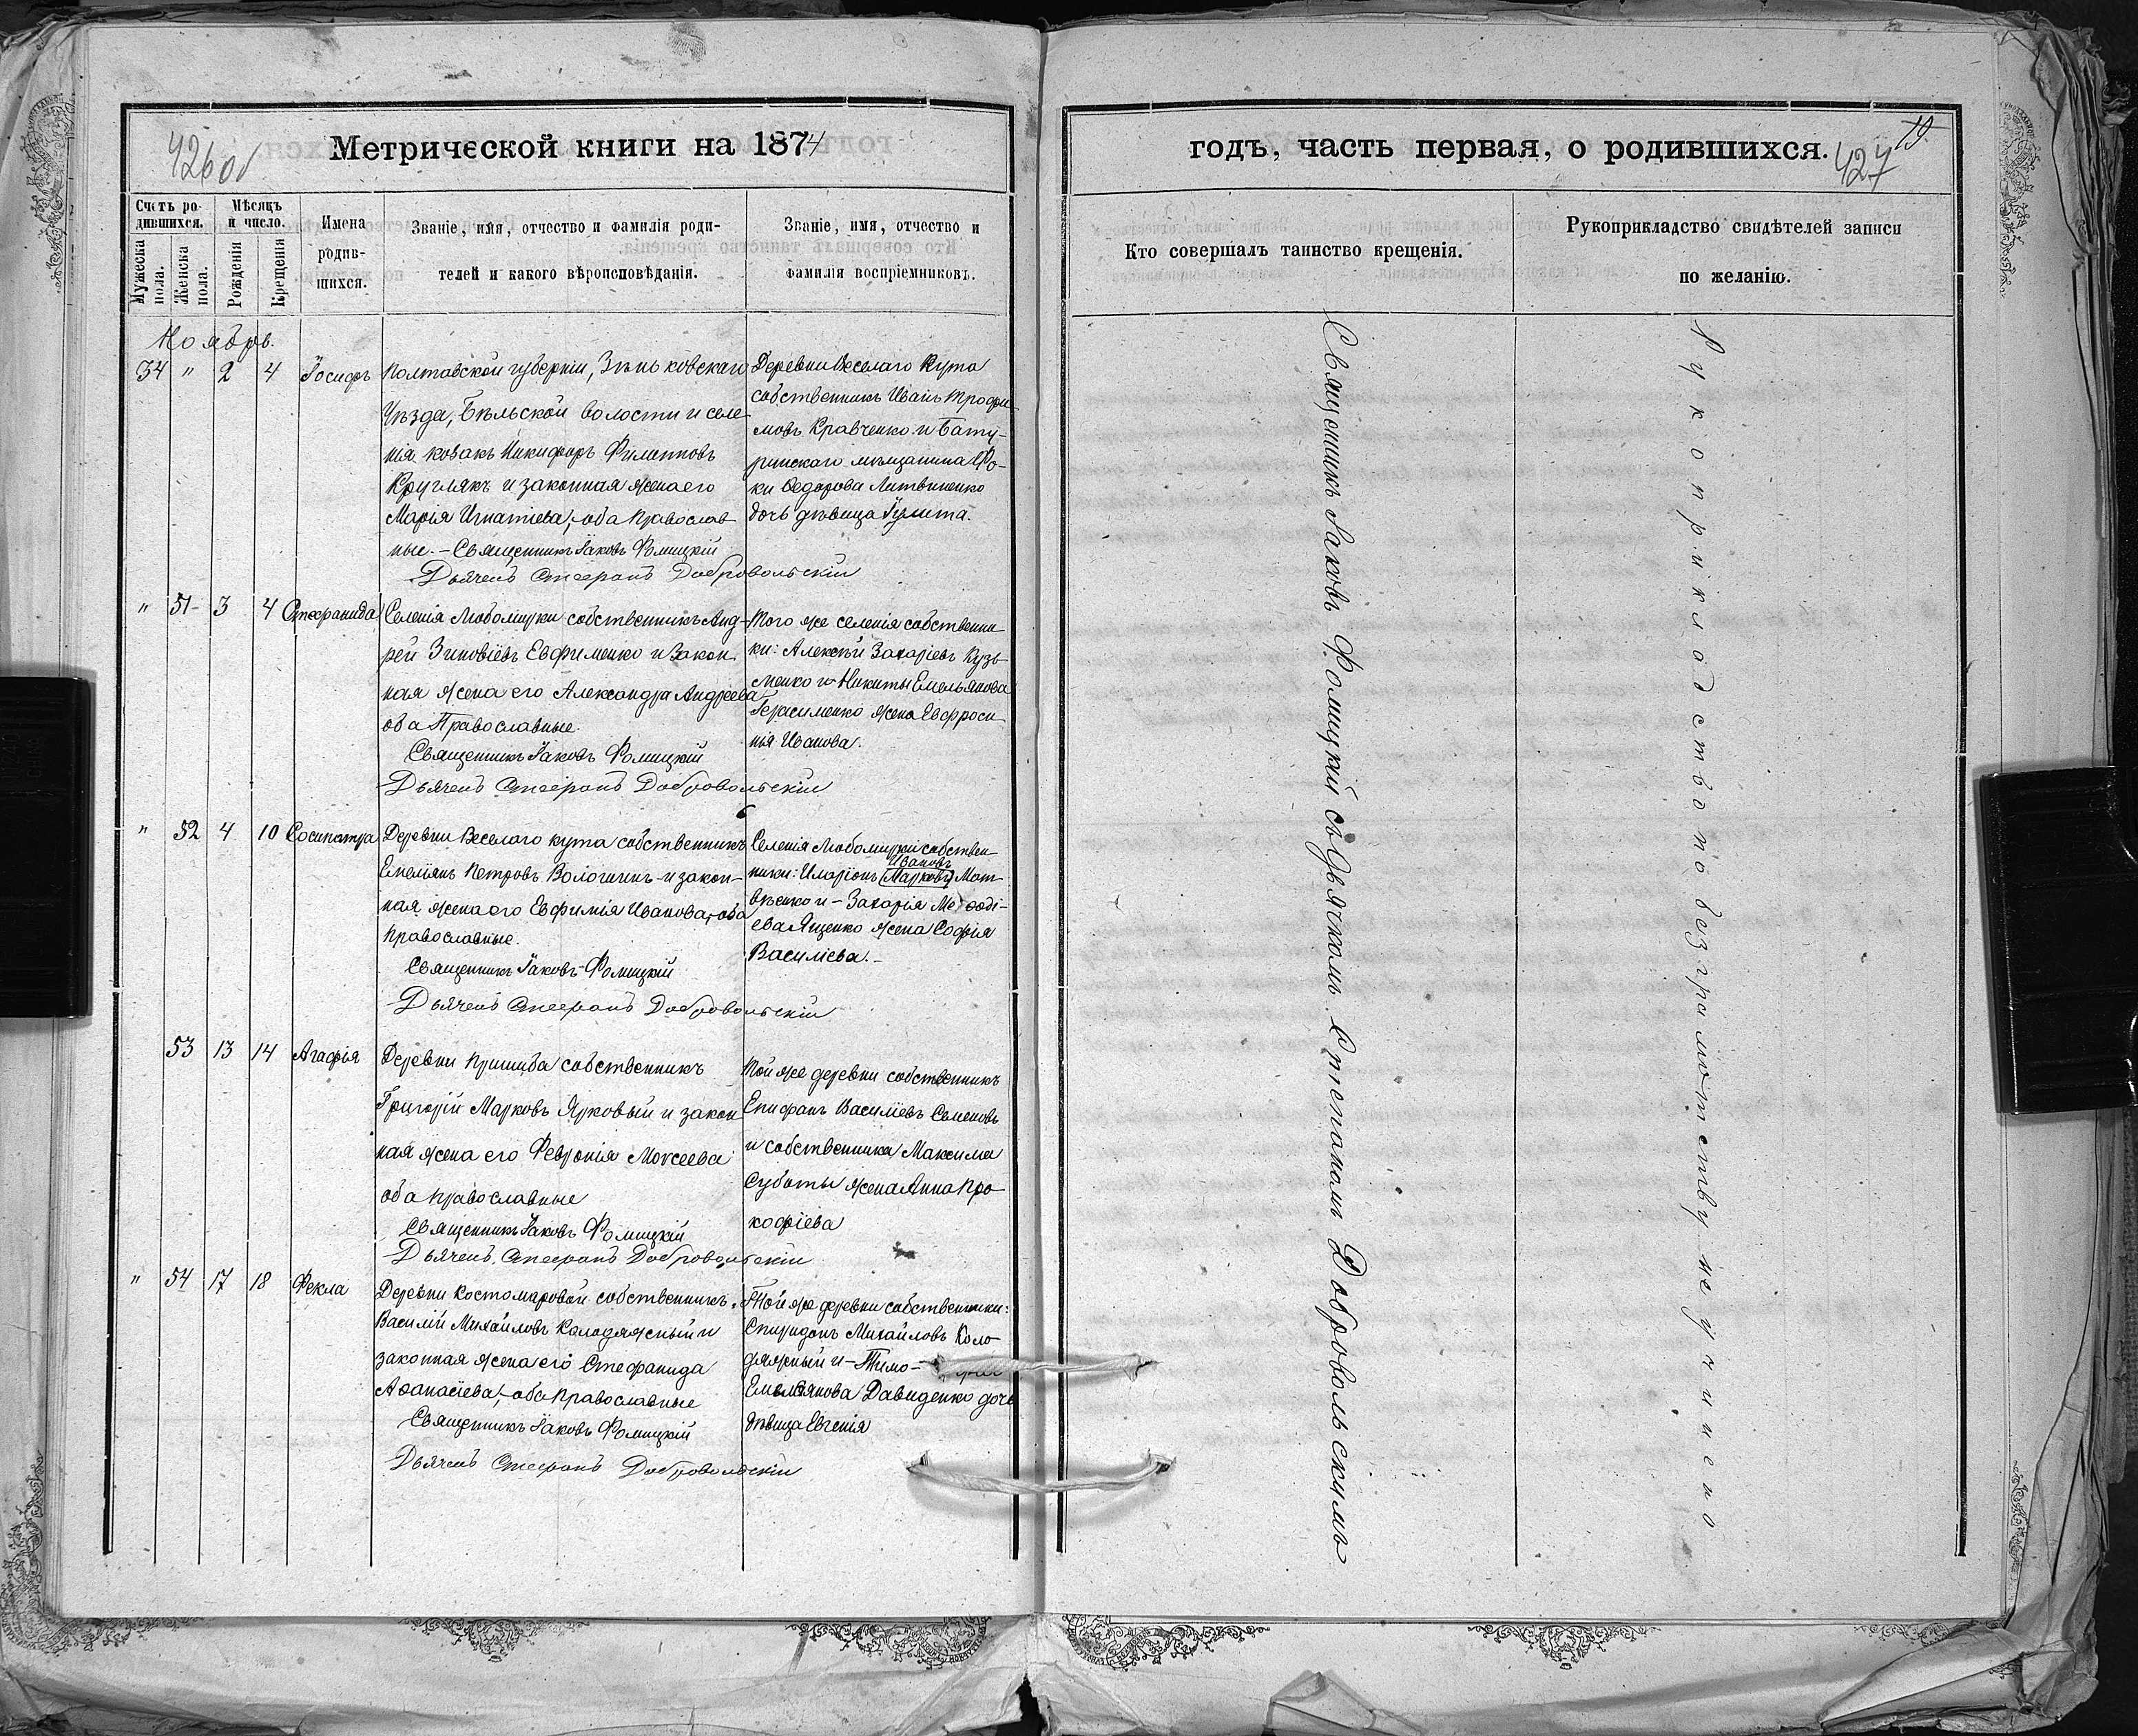 426об
Метрической книги на 1874
Счетъ ро-
дившихся.
Мужеска
пола.
Женска
пола.
Мѣсяцъ
и число.
Рожденія
Крещенія
Имена
родив-
шихся.
Званіе, имя, отчество и фамилія роди-
телей и какого вѣроисповѣданія.
Званіе, имя, отчество и
фамилія воспріемниковъ.
Ноябрь.
34 " 2 4 Іосифъ
Полтавской губерніи, Зѣньковскаго
Уѣзда, Бѣльской волости и селе
нія козакъ Никифоръ Филиповъ
Круглякъ и законная жена его
Марія Игнатіева, оба Православ
ные. - Священникъ Іаковъ Фомицкій
Дьячекъ Стефанъ Добровольскій
Деревни Веселаго Кута
собственникъ Иванъ Трофи-
мовъ Кравченко и Бату-
ринскаго мѣщанина Фо-
ки Ѳедорова Литвиненко
дочь дѣвица Іулита.
" 51 3 4 Стефанида
Селенія Любомирки собственникъ Анд-
рей Зиновіевъ Евфименко и закон
ная жена его Александра Андреева
оба Православные.
Священникъ Іаковъ Фомицкій
Дьячекъ Стефанъ Добровольскій
Того же селенія собственни
ки: Алексѣй Захаріевъ Кузь-
менко и Никиты Емельянова
Герасименко жена Евфроси
нія Иванова.
" 52 4 10 Сосипатра
Деревни Веселаго кута собственникъ
Емеліянъ Петровъ Вологинъ и закон-
ная жена его Евфимія Иванова, оба
православные.
Священникъ Іаковъ Фомицкій
Дьячекъ Стефанъ Добровольскій
Селенія Любомирки собствен
Ивановъ
ники: Иларіонъ (Марковъ) Мат
вѣенко и - Захарія Меѳоді-
ева Яценко жена Софія
Василіева. -
53 13 14 Агафія
Деревни Пришиба собственникъ
Григорій Марковъ Ярковый и закон
ная жена его Февронія Моисеева
оба православные
Священникъ Іаковъ Фомицкій
Дьячекъ Стефанъ Добровольскій
Той же деревни собственникъ
Епифанъ Василіевъ Семеновъ
и собственника Максима
Суботы жена Анна Про
кофіева
" 54 17 18 Фекла
Деревни Костомаровой собственникъ
Василій Михайловъ Колодяжный и
законная жена его Стефанида
Аѳанасіева, - оба православные
Священникъ Іаковъ Фомицкій
Дьячекъ Стефанъ Добровольскій
Той же деревни собственники:
Спиридонъ Михайловъ Коло
дяжный и - Тимо-
Емельянова Давиденко дочь
дѣвица Евгенія
годъ, часть первая, о родившихся.
79.
427
Кто совершалъ таинство крещенія.
Рукоприкладство свидѣтелей записи
по желанію.
Священникъ Іаковъ Фомицкій съ дьячкомъ Стефаномъ Добровольскимъ
Рукоприкладство по безграмотству не учинено